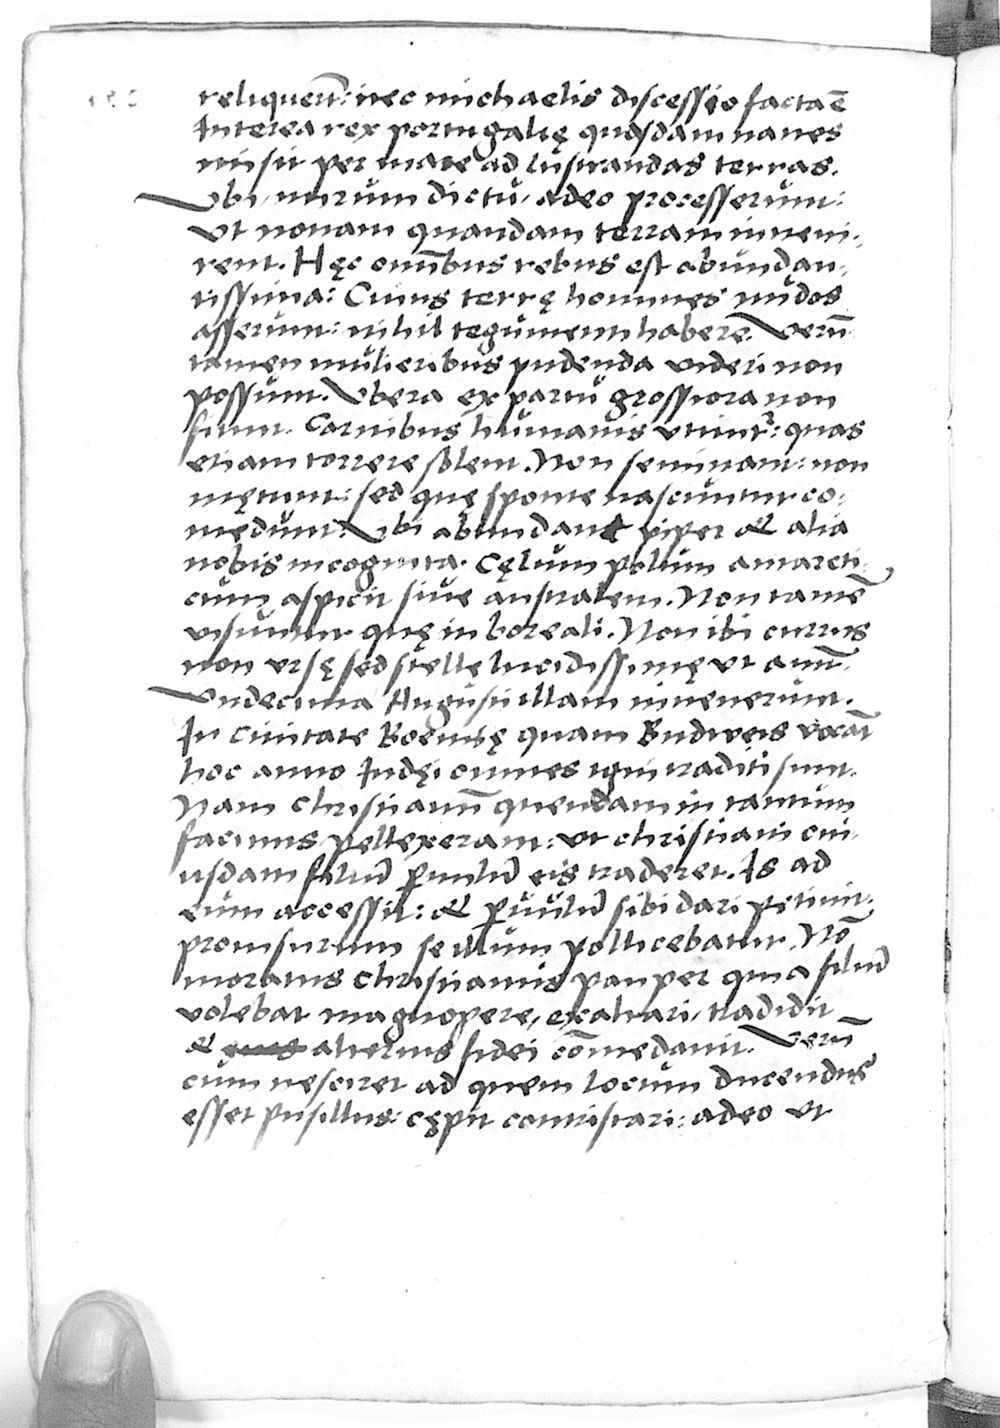 reliquerūt: nec michaelis discessio facta ē
Interea rex portugalię quasdam naues
misit per mare ad lustrandas terras.
Vbi, mirum dictu, adeo processerunt:
vt nouam quandam terram inueni,
rent. Hęc omnibus rebus est abundan,
tissima: Cuius terrę homines nudos
asserunt: nihil tegumenti habere. Verū
tamen mulieribus pudenda uideri non
possunt. Vbera ex partu grossiora non
fiunt. Carnibus humanis vtuntr̄: quas
etiam torrere solent. Non seminant: non
mętunt: sed quę sponte nascuntur co,
medunt. Vbi abundant piper & alia
nobis incognita. Cęlum polum antarcti,
cum aspicit siue australem. Non tamē
visuntur quę in boreali. Non ibi currus
non ursę sed stellę lucidissimę vt aiūt.
Vndecima Augusti illam inuenerunt.
In ciuitate Boemię quam Budweis vocāt
hoc anno Iudęi omnes igni traditi sunt.
Nam christianū quendam in tantum
facinus pellexerant: vt christiani cui,
usdam filiū ꝑuulū eis traderet. Is ad
eum accessit: & ꝑuulū sibi dari petiuit.
prouisurum se illum pollicebatur. Nō
moratus christianus pauper quia filiū
volebat magnopere, exaltari, tradidit
& alterius fidei cōmedauit. Verū
cum nesciret ad quem locum ducendus
esset pusillus: cępit contristari: adeo vt